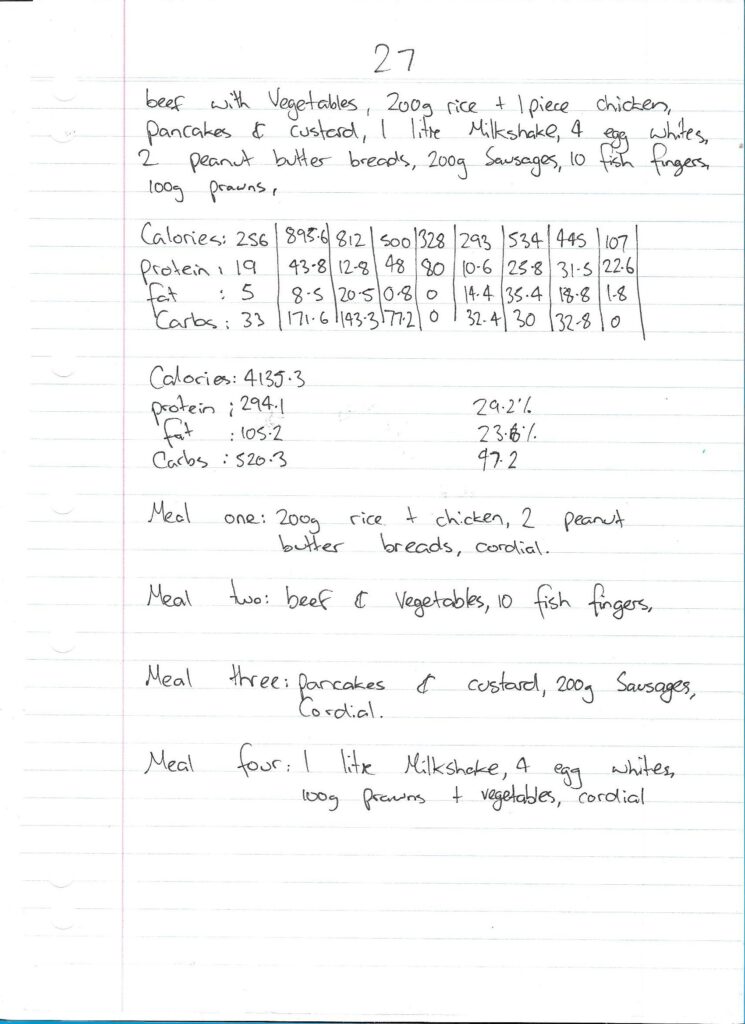 27
beef with Vegetables, 200g rice + 1 piece chicken,
pancakes & custard, 1 litre Milkshake, 4 egg whites,
2 peanut butter breads, 200g Sausages, 10 fish fingers,
100g prawns,
Calories: 256 | 895.6 | 812 | 500 | 328 | 293 | 534 | 445 | 107
protein: 19 | 43.8 | 12.8 | 48 | 80 | 10.6 | 25.8 | 31.5 | 22.6
fat : 5 | 8.5 | 20.5 | 0.8 | 0 | 14.4 | 35.4 | 18.8 | 1.8
Carbs: 33 | 171.6 | 143.3 | 77.2 | 0 | 32.4 | 30 | 32.8 | 0
Calories: 4135.3
protein : 294.1 29.2%
fat : 105.2 23.6%
Carbs : 520.3 47.2
Meal one: 200g rice + chicken, 2 peanut
butter breads, cordial.
Meal two: beef & Vegetables, 10 fish fingers,
Meal three: pancakes & custard, 200g Sausages,
Cordial.
Meal four: 1 litre Milkshake, 4 egg whites,
100g prawns + vegetables, cordial